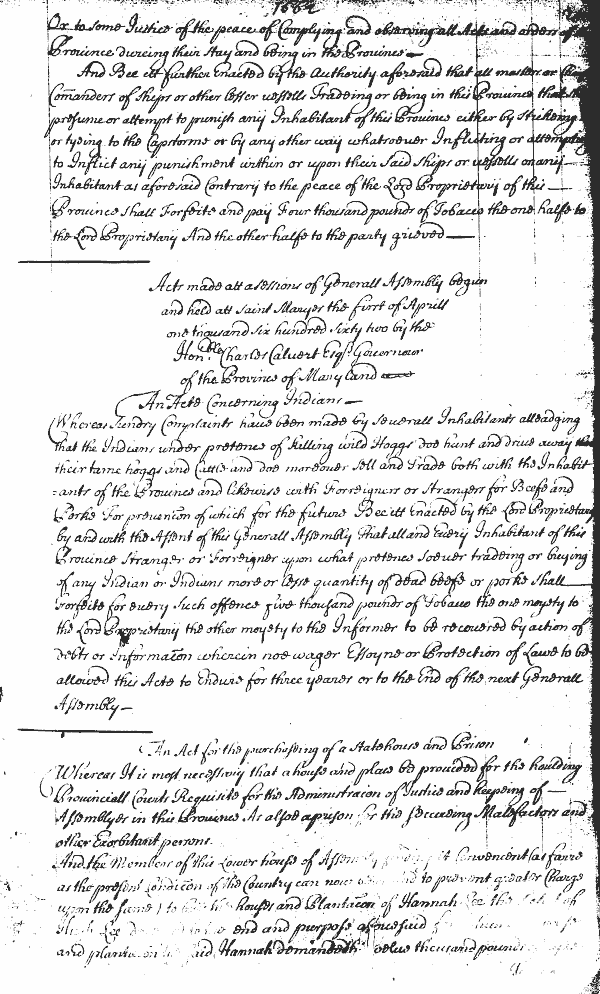 1662
Or to some Justice of the peace of Complying and observing all Acts and orders of
Province dureing their Stay and being in the Province
And Bee itt further Enacted by the Authority aforesaid that all master or
Comanders of Ships or other lesser vessells Tradeing or being in this Province that
presume or attempt to punish any Inhabitant of this Province either by Strikeing
or tyeing to the Capstorme or by any other way whatsoever Inflicting or attempting
to Inflict any punishment within or upon their Said Ships or vessells on any
Inhabitant as aforesaid Contrary to the peace of the Lord Proprietary of this
Province Shall Forfeite and pay Four thousand pounds of Tobacco the one halfe to
the Lord Proprietary And the other halfe to the party grieved
Acts made att a sessions of Generall Assembly begun
and held att Saint Maryes the first of Aprill
one thousand six hundred sixty two by the
Honble Charles Calvert Esqr Governour
of the Province of Mary land
An Acte Concerning Indians
Whereas Sundry Complaints have been made by severall Inhabitants alleadging
that the Indians under pretence of Killing wild Hoggs doe hunt and drive away
their tame hoggs and Cattle and doe moreover Sell and Trade both with the Inhabit
=ants of the Province and likewise with Forreigners or Strangers for Beefe and
Porke For prevencon of which for the future Bee itt Enacted by the Lord Proprietary
by and with the Assent of this Generall Assembly That all and Every Inhabitant of this
Province Stranger or Forreigner upon what pretence soever tradeing or buying
of any Indian or Indians more or lesse quantity of dead beefe or porke Shall
Forfeite for every Such offence five thousand pounds of Tobacco the one moyety to
the Lord Proprietary the other moyety to the Informer to be recovered by action of
debts or Informacon wherein noe wager Essoyne or Protection of Lawe to be
allowed this Acte to Endure for three yeares or to the End of the next Generall
Assembly
An Act for the purchasseing of a Statehouse and Prison
Whereas It is most necessary that a house and place be provided for the houlding
Provinciall Courts Requisite for the Administracon of Justice and keepeing of
Assemblyes in this Province As alsoe a prison for the Secureing Malefactors and
other Exorbitant persons.
And the Members of this Lower house of Assembly it Convenient (as farre
as the present Condicon of the Country can now to prevent greater Charge
upon the Same) to the houses and Plantacon of Hannah Lee the of
Lee end and purpose aforesaid
and plantacon Said Hannah demandeth twelve thousand pounds